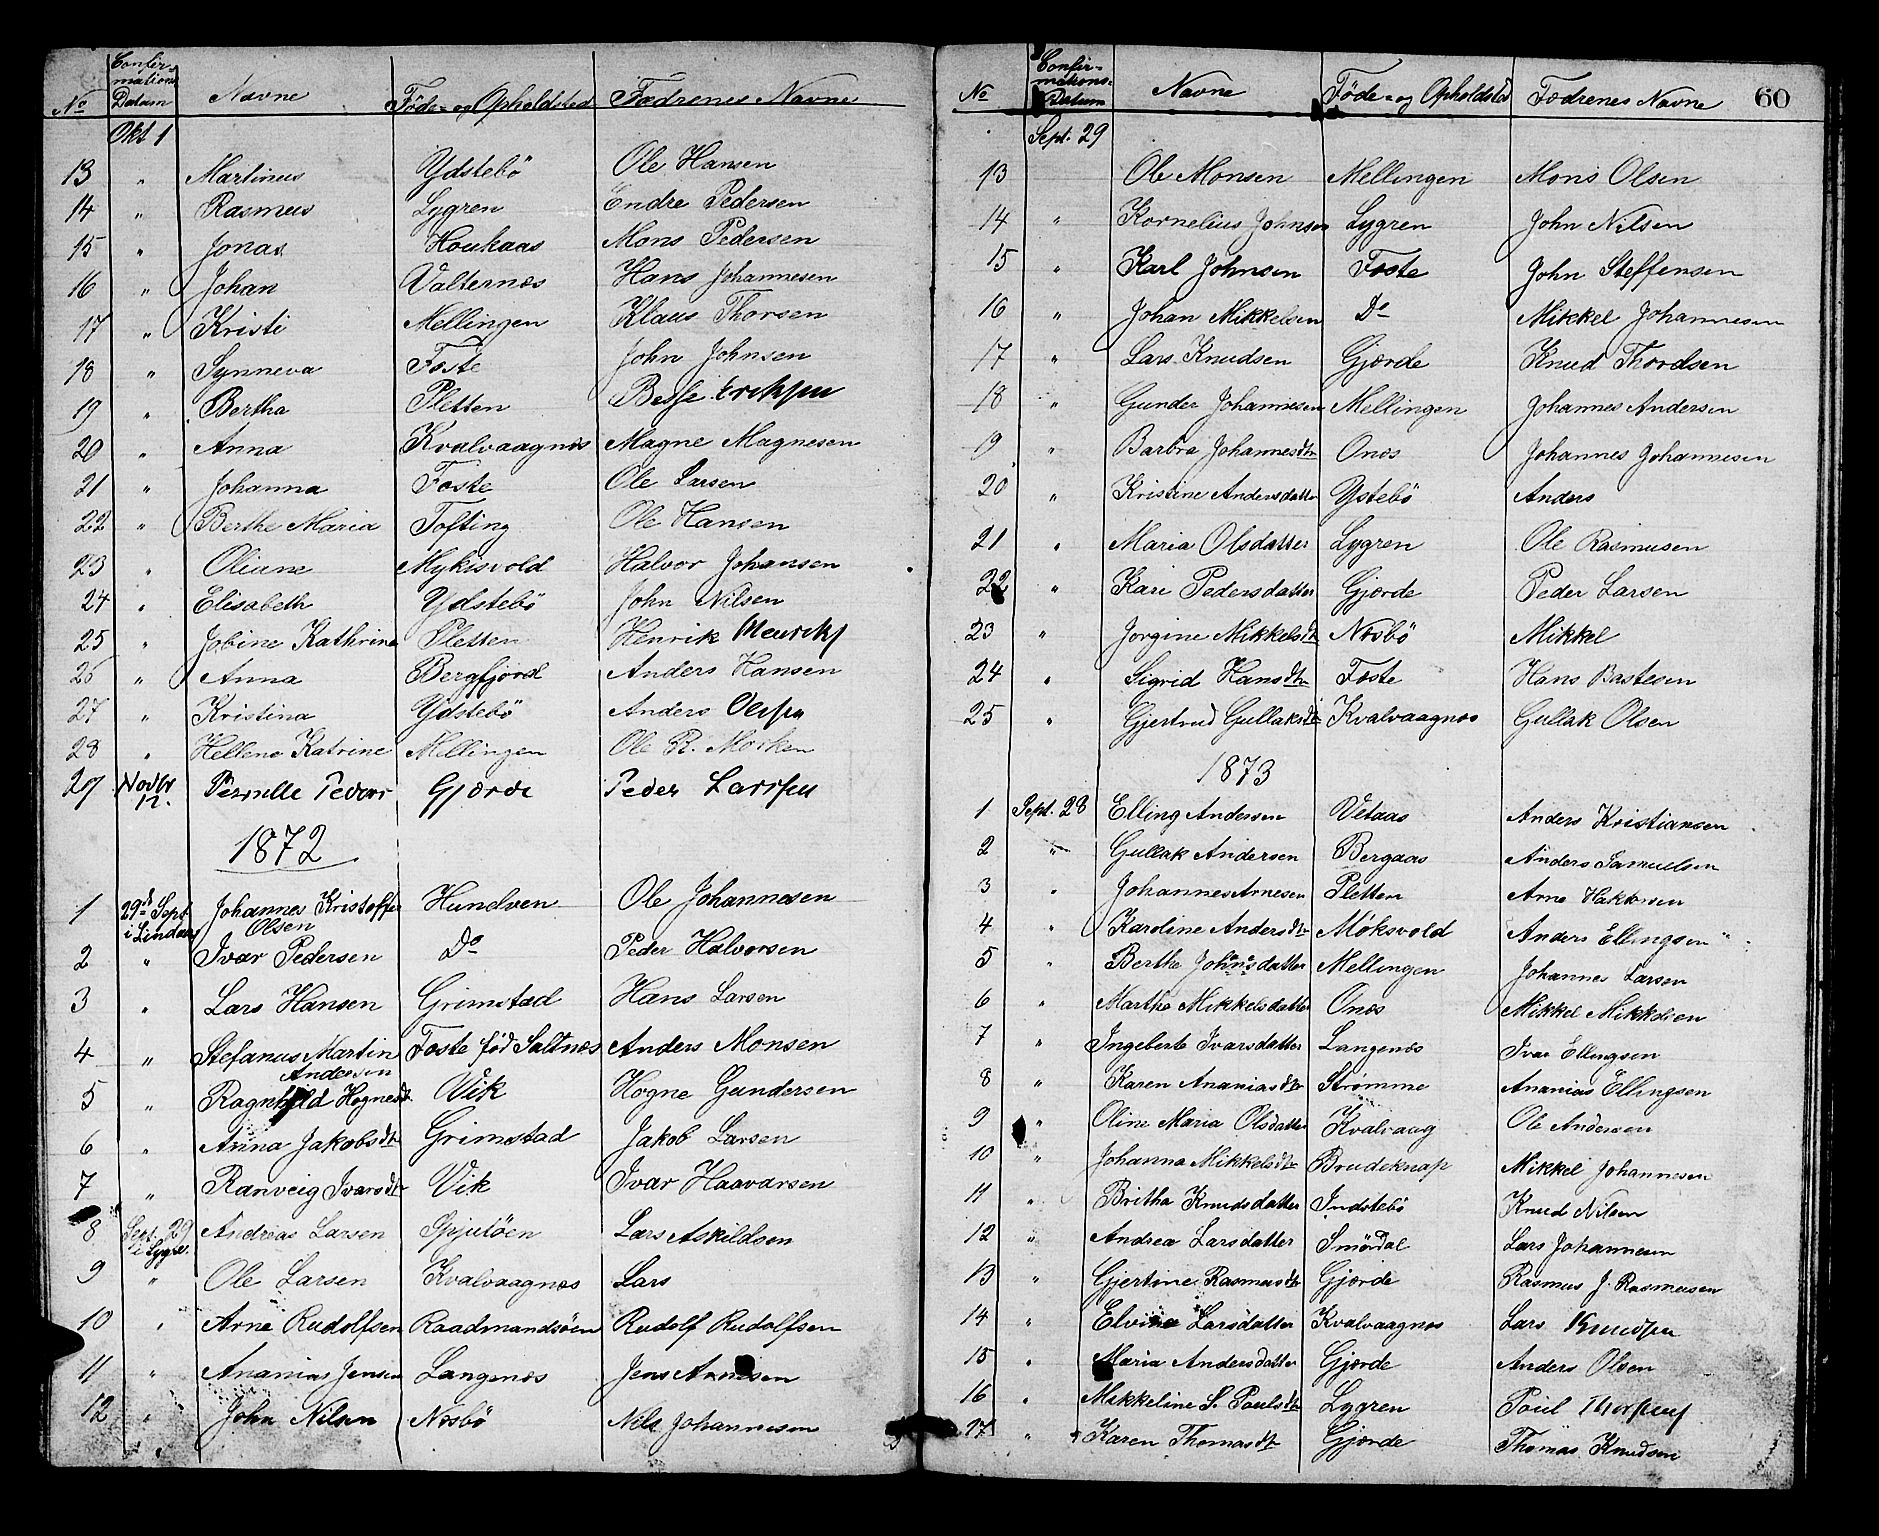 No Confir-mations Datum Navne Föde- og Opholdsted Fædrenes Navne
Okt 1
13 " Martinus Ydstebö Ole Hansen
14 " Rasmus Lygren Endre Pedersen
15 " Jonas Houkaas Mons Pedersen
16 " Johan Valternæs Hans Johannesen
17 " Kristi Mellingen Klaus Thorsen
18 " Synneva Foste John Johnsen
19 " Bertha Pletten
20 " Anna Kvalvaagnæs Magne Magnesen
21 " Johanna Foste Ole Larsen
22 " Berthe Maria Tofting Ole Hansen
23 " Oliane Mykisvold Halvor Johansen
24 " Elisabeth Ydstebö John Nilsen
25 " Jobine Kathrine Pletten Henrik
26 " Anna Bergfjord Anders Hansen
27 " Kristina Ydstebö Anders
28 " Hellene Katrine Mellingen Ole R. Morken
29 Novbr 12. Pernille Gjærde Peder Larssen
1872
1 29de Sept i Lindaas Johannes Kristoffer Hundven Ole Johannesen
Olsen
2 " Ivar Pedersen Do Peder Halvorsen
3 " Lars Hansen Grimstad Hans Larsen
4 " Stefanus Martin Foste föd Saltnæs Anders Monsen
Andersen
5 " Ragnhild Hognesdt Vik Hogne Gundersen
6 " Anna Jakobsdtr Grimstad Jakob Larsen
7 " Ranveig Ivarsdtr Vik Ivar Haavarsen
8 Sept. 29 i Lygre. Andreas Larsen Spjutöen Lars Askildsen
9 " Ole Larsen Kvalvaagnæs Lars
10 " Arne Rudolfsen Raadmandsöen Rudolf Rudolfsen
11 " Ananias Jensen Langenæs Jens Arnesen
12 " John Nilsen Næsbö Nils Johannesen
No Confir-mations-Datum Navne Föde- og Opholdsted Fædrenes Navne 60
Sept. 29
13 Ole Monsen Mellingen Mons Olsen
14 " Kornelius Johnsen Lygren John Nilsen
15 " Karl Johnsen Foste John Steffensen
16 " Johan Mikkelsen Do Mikkel Johannesen
17 " Lars Knudsen Gjærde Knud Thordsen
18 " Gunder Johannesen Mellingen Johannes Andersen
19 " Barbra Johannesdtr Onæs Johannes Johannesen
20 " Kristine Andersdatter Ystebö Anders
21 " Maria Olsdatter Lygren Ole Rasmusen
22 " Kari Pedersdatter Gjærde Peder Larsen
23 " Jorgine Mikkelsdt Næsbö Mikkel
24 " Sigrid Hansdtr Foste Hans Bastesen
25 " Gjertrud Gullaksdt Kvalvaagnæs Gullak Olsen
1873
1 Sept. 28 Elling Andersen Vetaas Anders Kristiansen
2 " Gullak Andersen Bergaas Anders Samuelsen
3 " Johannes Arnesen Pletten Arne Haktorsen
4 " Karoline Andersdtr Møksvold Anders Ellingsen
5 " Berthe Johnsdatter Mellingen Johannes Larsen
6 " Martha Mikkelsdatter Onæs Mikkel Mikkelsen
7 " Ingeberte Ivarsdatter Langenæs Ivar Ellingsen
8 " Karen Ananiasdtr Strømme Ananias Ellingsen
9 " Oline Maria Olsdatter Kvalvaag Ole Andersen
10 " Johanna Mikkelsdtr Brudeknap Mikkel Johannesen
11 " Britha Knudsdatter Indstebö Knud Nilsen
12 " Andrea Larsdatter Smørdal Lars Johannesen
13 " Gjertine Rasmusdtr Gjærde Rasmus J. Rasmusen
14 " Elvine Larsdatter Kvalvaagnæs Lars Knudsen
15 " Maria Andersdatter Gjærde Anders Olsen
16 " Mikkeline S. Paulsdtr Lygren Poul
17 " Karen Thomasdtr Gjærde Thomas Knudsen